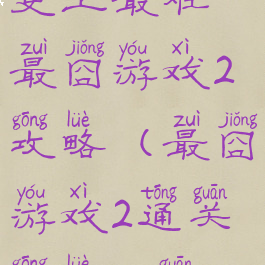 zuì jiǒng yóu xì
最囧游戏2
gōng lüè zuì jiǒng
攻略（最囧
yóu xì tōng guān
游戏2通关